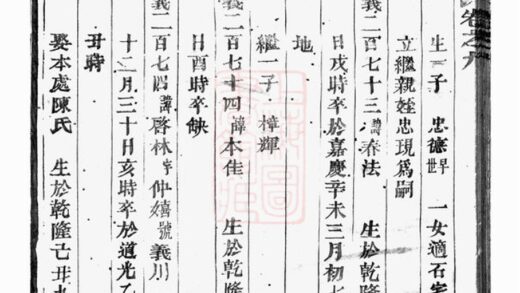 卷之九
生一子 忠德早世 一女適石
立繼親姪忠現爲嗣
義二百七十三諱春法 生於乾隆
日戌時卒於嘉慶辛未三月初七
地
繼一子 樟輝
義二百七十四諱本佳 生於乾隆
日酉時卒缺
義二百七四諱啓林字仲嬉號義川
十二月三十日亥時卒於道光乙
丑時
娶本處陳氏 生於乾隆己丑九